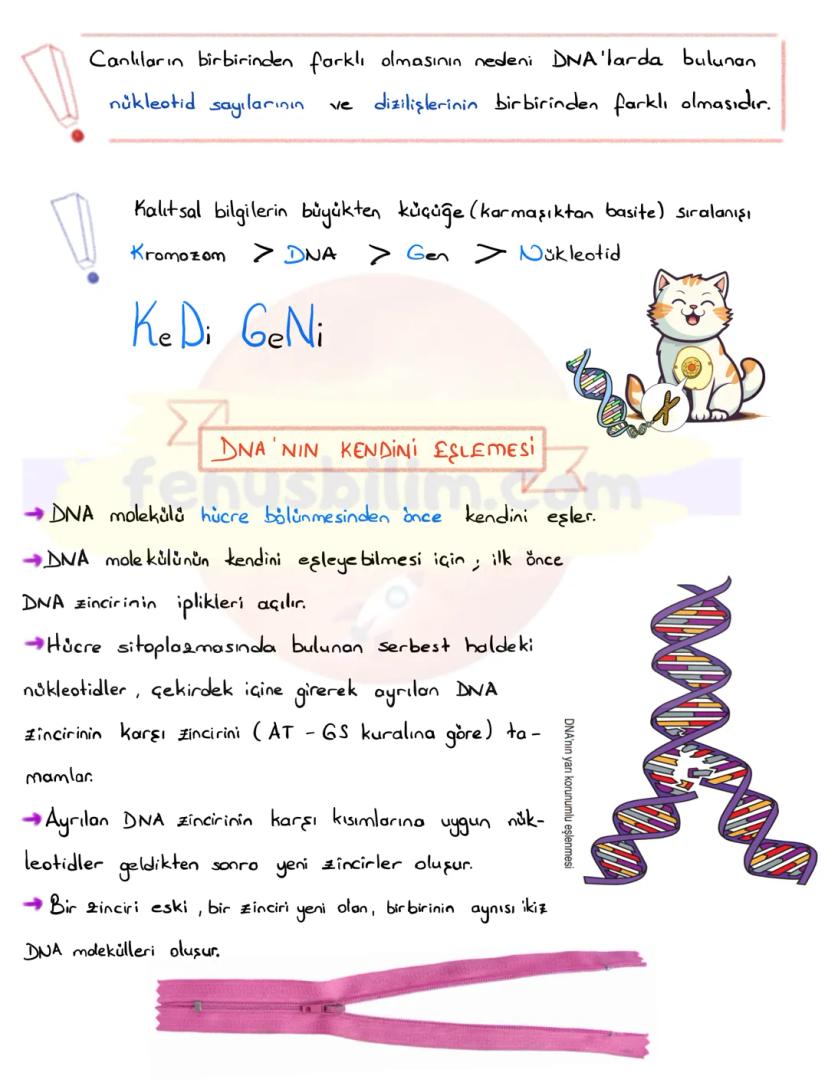 Canlıların birbirinden farklı olmasının nedeni DNA'larda bulunan
nükleotid sayılarının ve dizilişlerinin birbirinden farklı olmasıdır.
Kalıtsal bilgilerin büyükten küçüğe (karmaşıktan basite) sıralanışı
Kromozom > DNA > Gen > Nükleotid
KeDi GeNi
DNA'NIN KENDİNİ EŞLEMESİ
fenusbilim.com
→ DNA molekülü hücre bölünmesinden önce kendini eşler.
→ DNA molekülünün kendini eşleyebilmesi için, ilk önce
DNA zincirinin iplikleri açılır.
→ Hücre sitoplazmasında bulunan serbest haldeki
nükleotidler, çekirdek içine girerek ayrılan DNA
zincirinin karşı zincirini (AT - GS kuralına göre) ta-
mamlar.
→ Ayrılan DNA zincirinin karşı kısımlarına uygun nük-
leotidler geldikten sonra yeni zincirler oluşur.
→ Bir zinciri eski, bir zinciri yeni olan, birbirinin aynısı ikiz
DNA molekülleri oluşur.
DNA'nın yarı korunumlu eşlenmesi